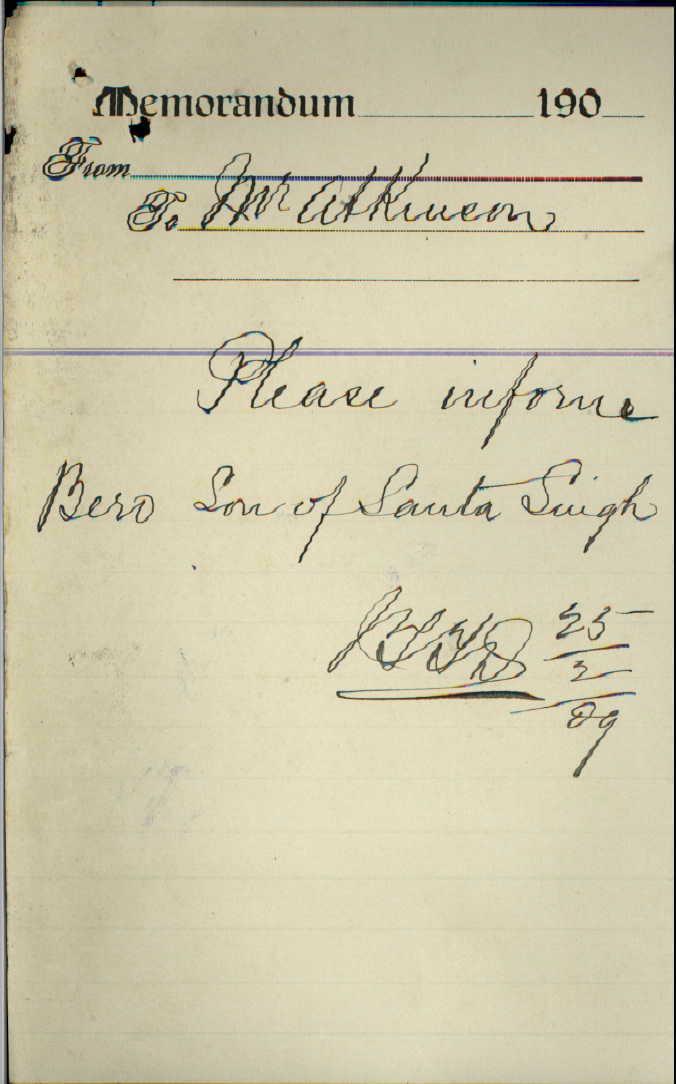 Memorandum 190
From
To Mr Atkinson
Please informe
Bero Son of Santa Singh
25
2
09